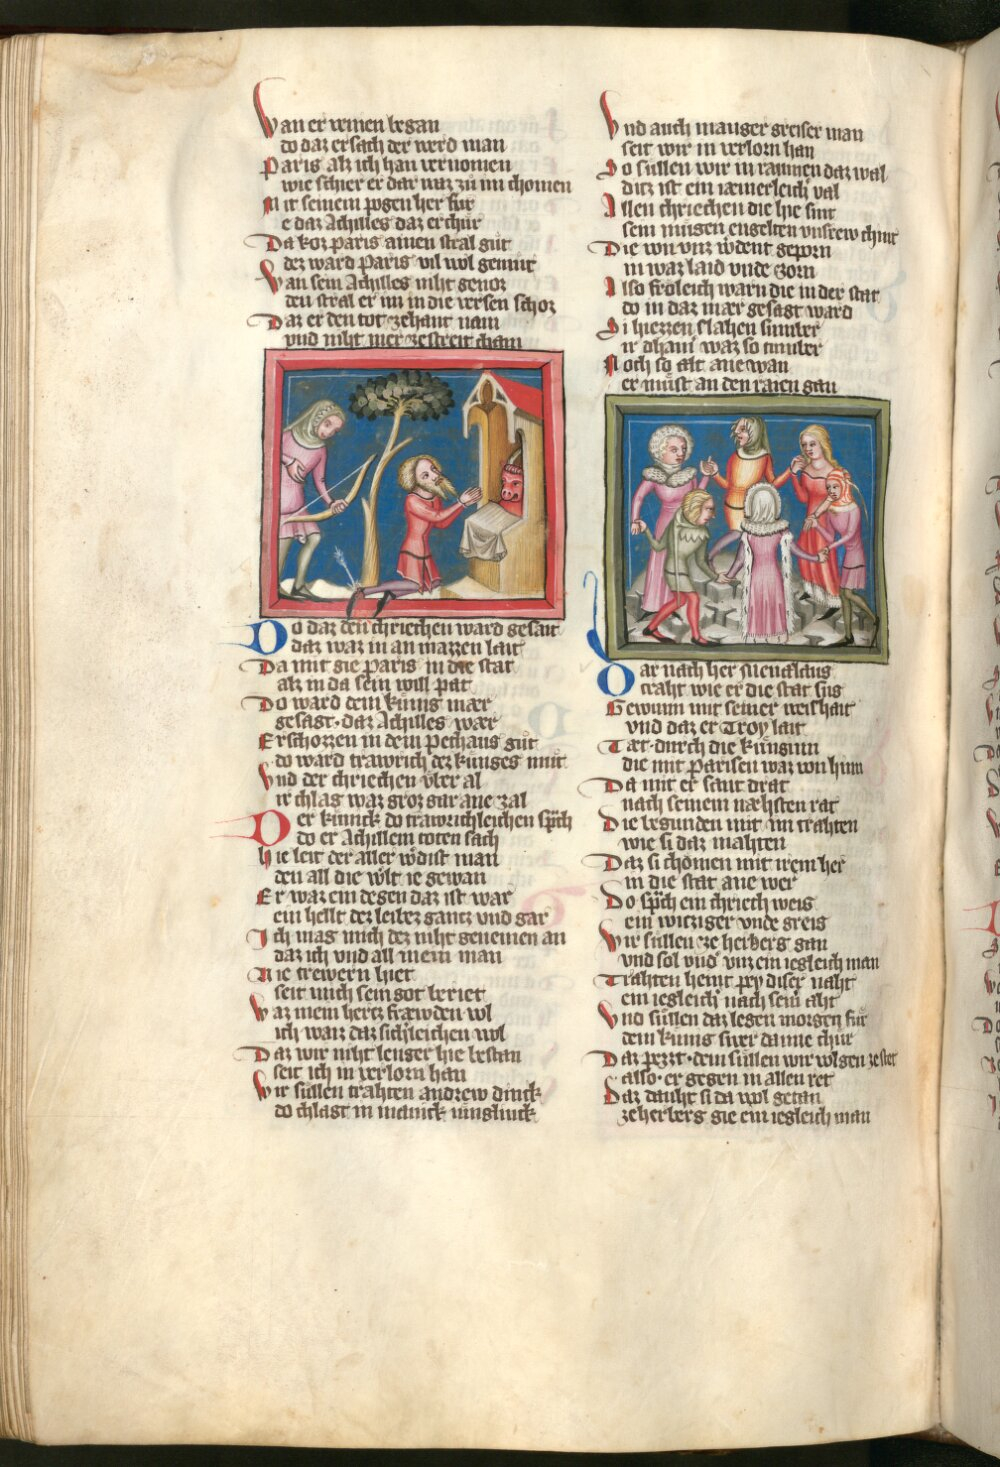 Wan er weinen began
do daz ersach der werd man
Paris als ich han vernomen
wie schier er dar waz zů im chomen
Mit seinem pogen her fur
e daz Achilles daz erchür
Da koz paris ainen stral gůt
dez ward Paris vil wol gemůt
Wan sein Achilles niht genoz
den stral er im in die versen schoz
Daz er den tot zehant nam
vnd niht mer ze streit cham
Do daz den chriechen ward gesait
daz waz in an mazzen lait
Da mit gie paris in die stat
als in da sein will pat
Do ward dem kunig mær
gesagt · daz Achilles wær
Erschozzen in dem Pethaus gůt
do ward trawrich dez kuniges můt
Vnd der chriechen vber al
ir chlag waz groz gar ane zal
Der kunick do trawrichleichen sp̄ch
do er Achillem toten sach
Hie leit der aller wͤdist man
den all die wͤlt ie gewan
Er waz ein degen daz ist war
ein hellt dez leibez gantz vnd gar
Ich mag mich dez niht genemen an
daz ich vnd all mein man
Nie trewern liet
seit mich sein got beriet
Waz mein hertz fræwden wl
ich waiz daz sichleichen wol
Daz wir niht lenger hie bestan
seit ich in verlorn han
Wir süllen trahten andrew dinck
do chlagt in manick iunglinck
Vnd auch maniger greiser man
seit wir in verlorn han
So süllen wir in rawmen daz wal
ditz ist ein iæmerleich val
Allen chriechen die hie sint
sein mügen engelten vnsrew chint
Die von vnz wͤdent geporn
in waz laid vnde zorn
Also fröleich warn die in der stat
do in daz mær gesagt ward
Si hiezzen slahen sumber
ir dhain waz so tumber
Noch so alt ane wan
er müst an den raien gan
Dar nach her Menalaus
traht wie er die stat sus
Gewunn mit seiner weishait
vnd daz er Troy lait
Tæt · durch die kunginn
die mit parisen waz von hinn
Da mit er sant drat
nach seinem næhsten rat
Die begunden mit im trahten
wie si daz mahten
Daz si chömen mit irem her
in die stat ane wer
Do sp̄ch ein chriech weis
ein witziger vnde greis
Wir süllen ze herberg gan
vnd sol vnd' vnz ein iegleich man
Trahten heint pey diser naht
ein iegleich nach seiner aht
Vnd süllen daz legen morgen für
dem kunig swer danne chür
Daz pezzt · dem süllen wir volgen ze stet
also · er gegen in allen ret
Daz dauht si da wol getan
ze herberg gie ein iegleich man